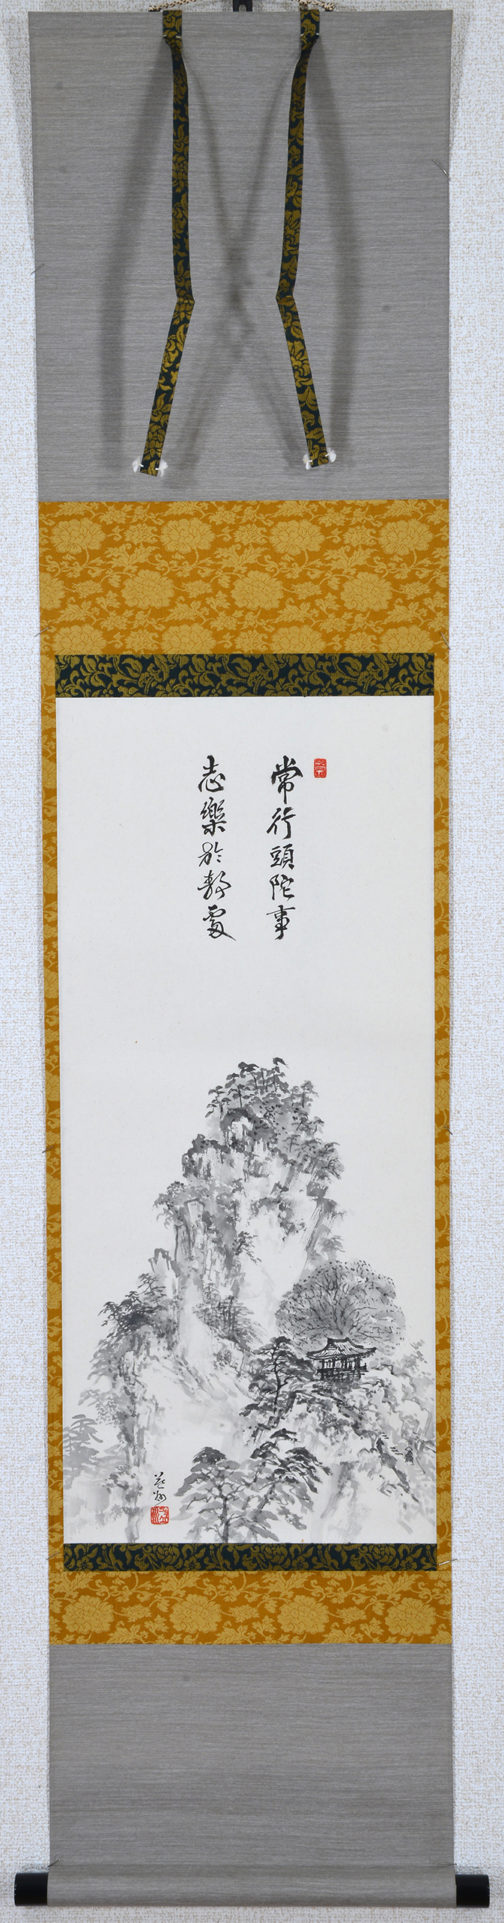 常行頭陀事
志樂於靜處